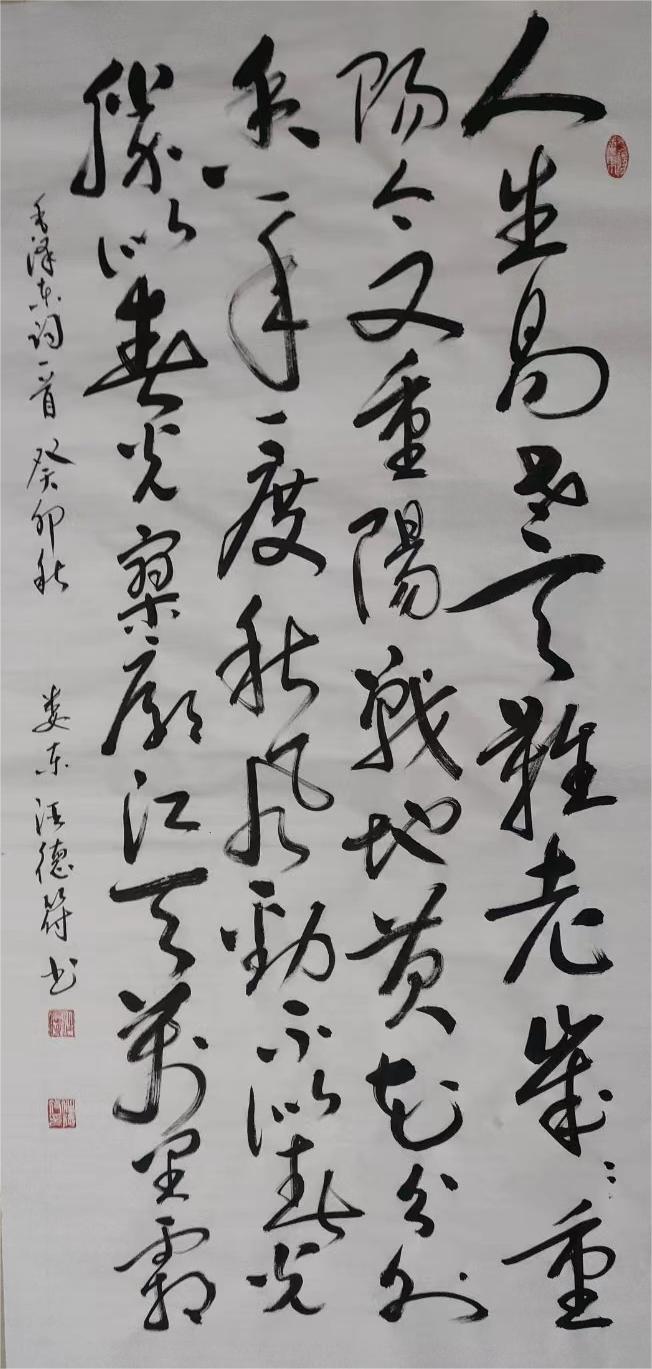 人生易老天難老歲々重
陽今又重陽戰地黄花分外
香一年一度秋风勁不似春光
勝似春光寥廓江天萬里霜
毛泽东词一首 癸卯秋 娄东汪德符书